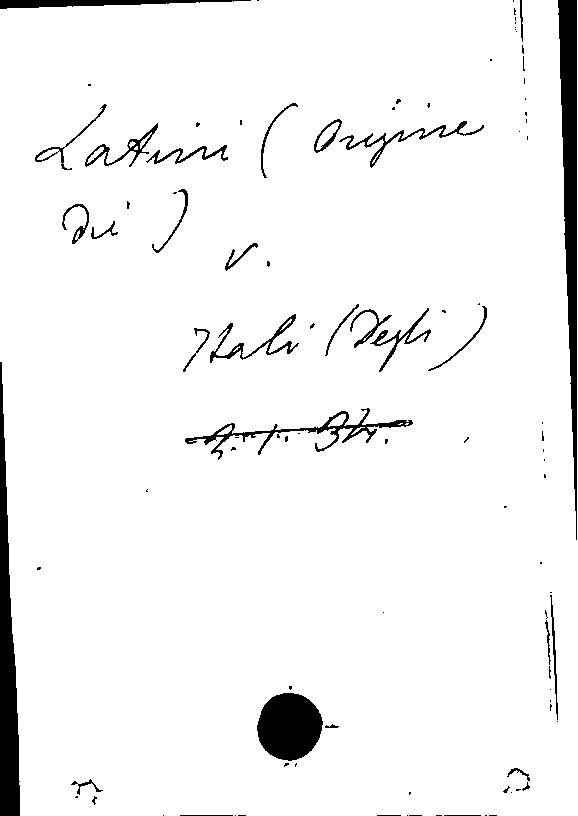 Latini (Origine
Dei)
v.
Itali (Degli)
2. 1. 34.